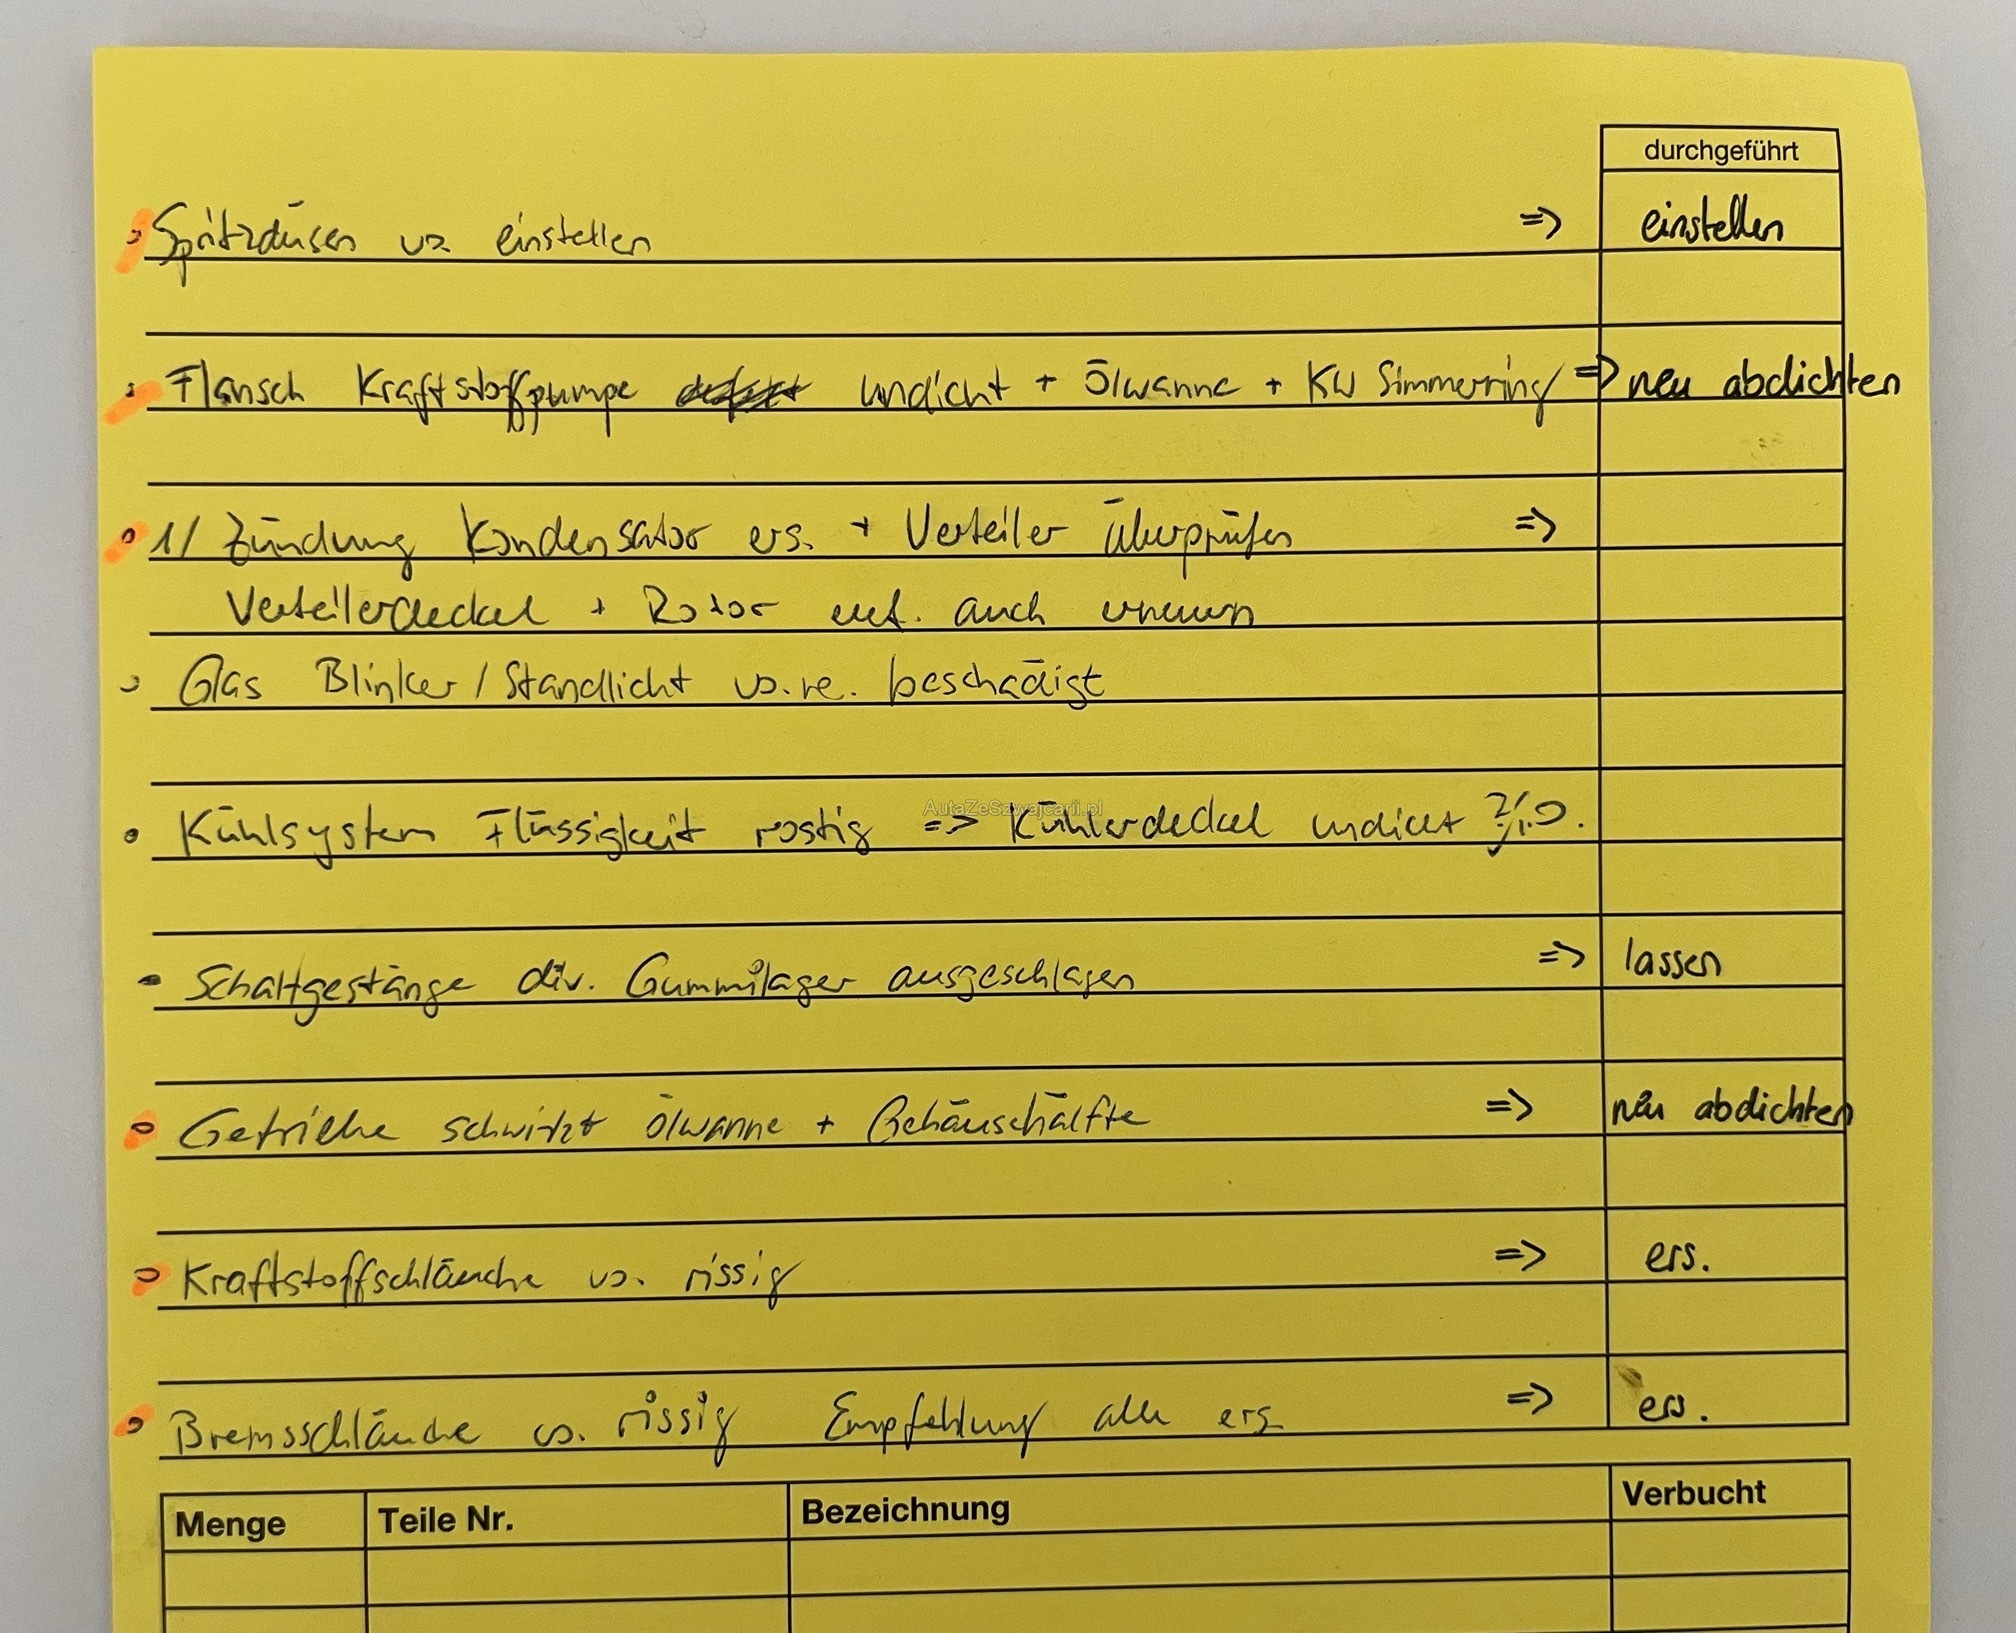 durchgeführt
Spritzdüsen vo. einstellen => einstellen
Flansch Kraftstoffpumpe undicht + Ölwanne + KW Simmerring => neu abdichten
1/ Zündung Kondensator ers. + Verteiler überprüfen =>
Verteilerdeckel + Rotor evt. auch erneuern
Glas Blinker/Standlicht vo.re. beschädigt
AutaZeSzwajcarii.pl
Kühlsystem Flüssigkeit rostig => Kühlerdeckel undicht
Schaltgestänge div. Gummilager ausgeschlagen => lassen
Getriebe schwitzt Ölwanne + Gehäuschälfte => neu abdichten
Kraftstoffschläuche vo. rissig => ers.
Bremsschläuche vo. rissig Empfehlung alle ers. => ers.
Menge Teile Nr. Bezeichnung Verbucht